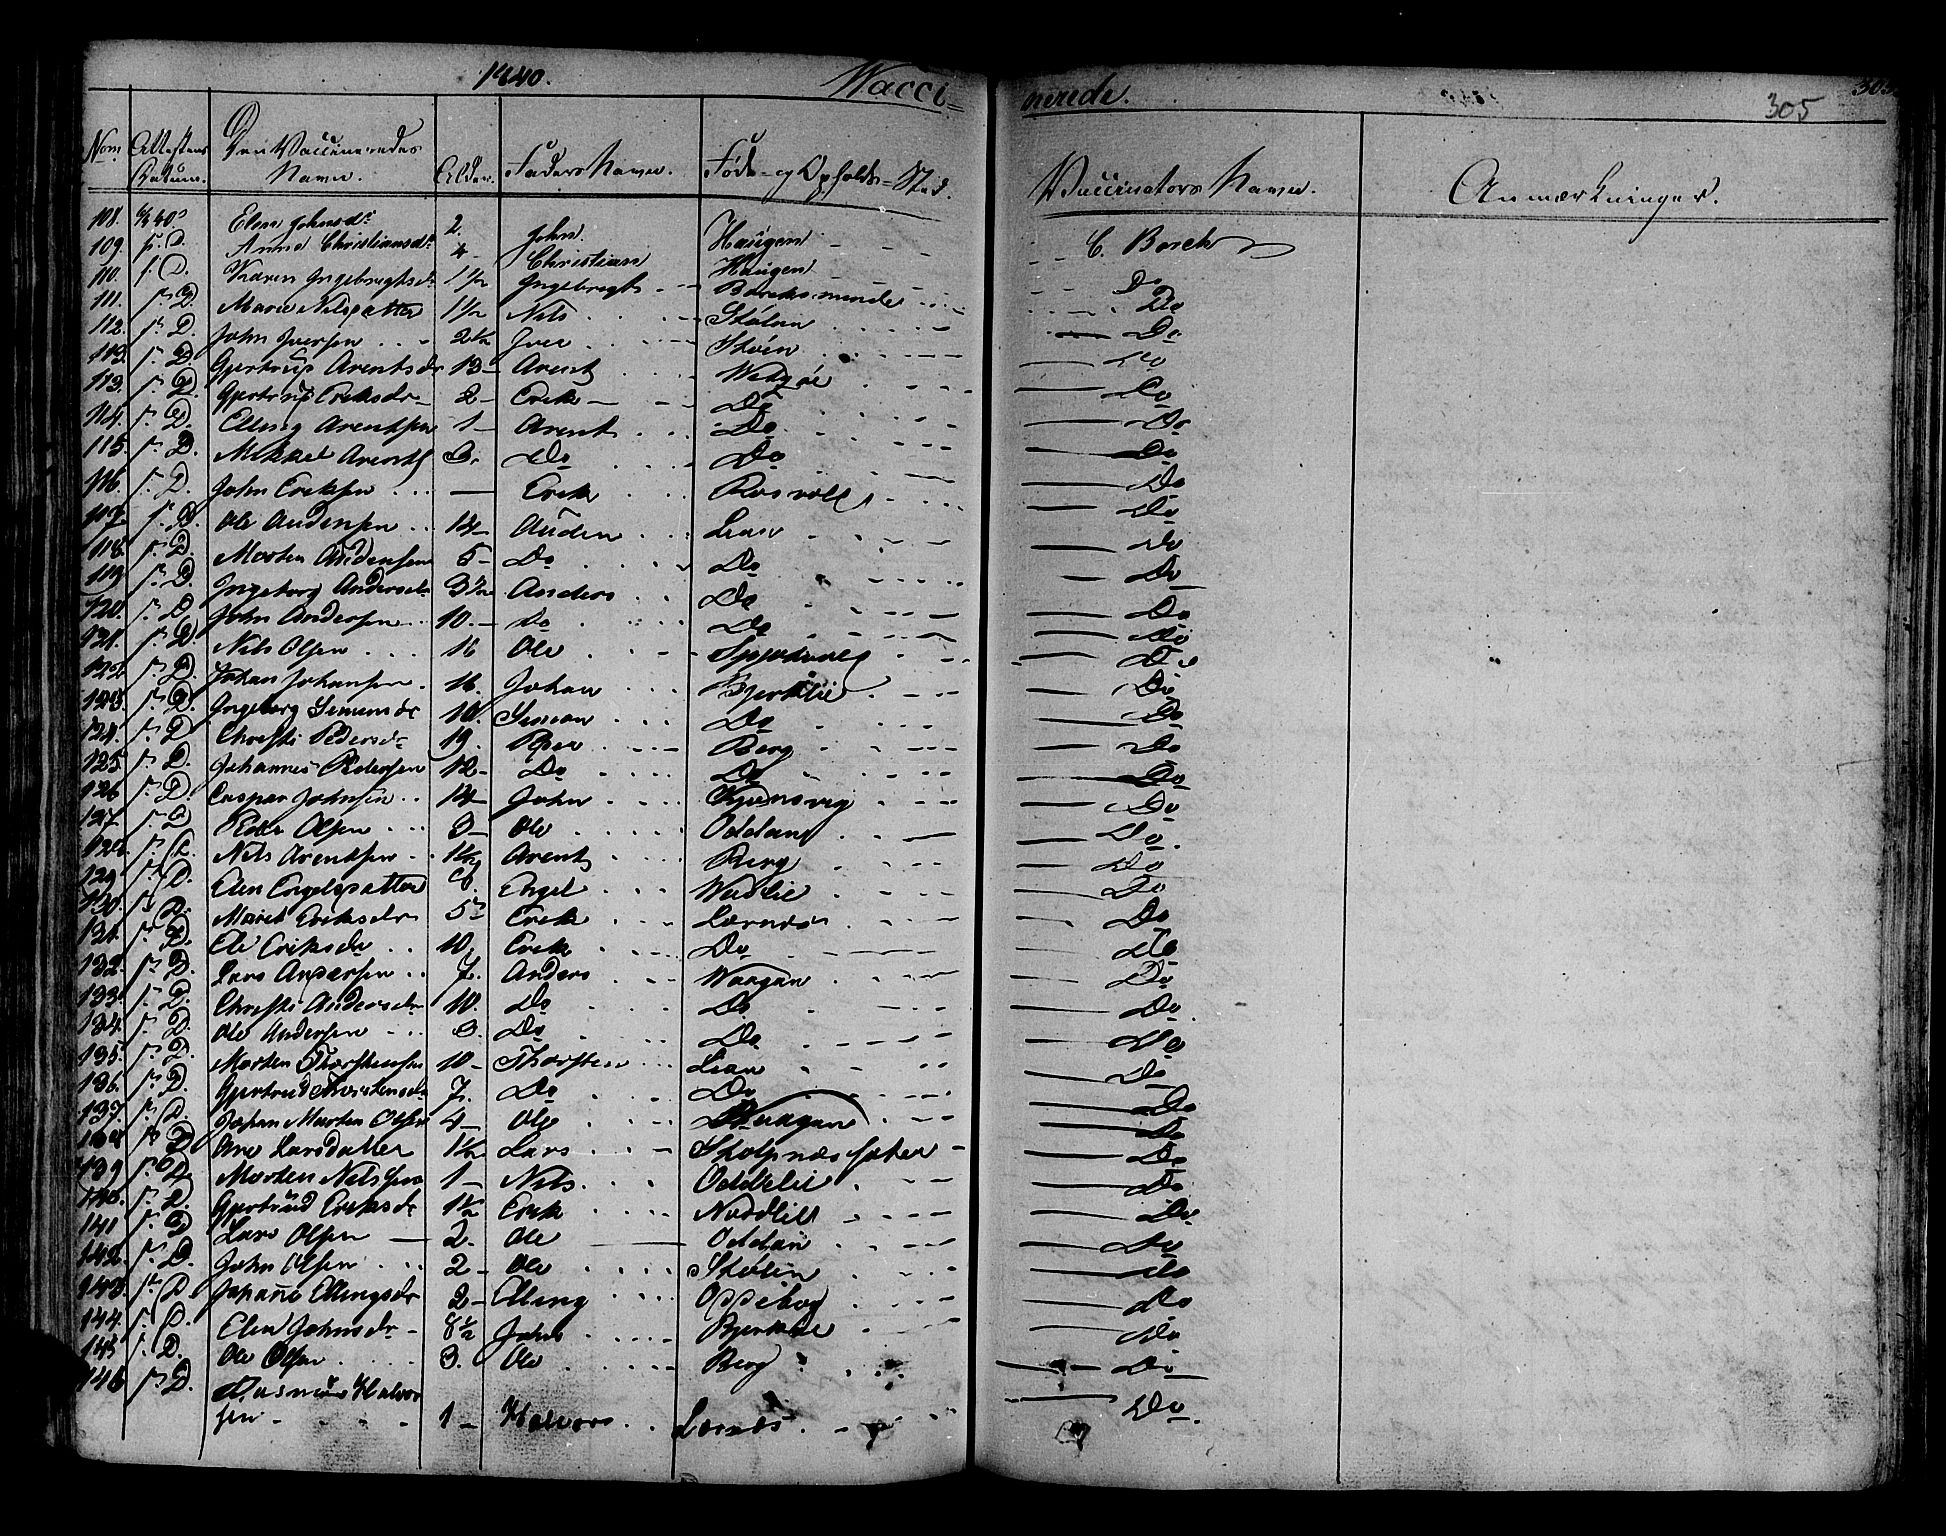 1840. Vacci= nerede. 305 305
Nom Attestens Datum. Den Vaccineredes Navn. Alder. Faders Navn. Føde- og Opholds-Sted. Vaccinators Navn. Anmærkninger.
108. Elen Johnsdr 2. John. Haugen C. Borch
109. D. Anne Christiansdr 4 Christian Haugen Do
110. D. Karen Ingebregtsdr 1½ Ingebregt Do
111. D. Marie Nilsdatter 1½ Nils Stølen Do
112. D. John Iversen 2½ Iver Støen Do
113. D. Gjertrup Arentsdr 13 Arent Do
113. D. Gjertrup Eriksdr 2 Erik Do Do
114. D. Elling Arentsen 1 Arent Do Do
115. D. Mikkel Arents 3. Do Do Do
116. D. John Eriksen Erik Rosvold Do
117. D. Ole Audensen 14 Auden Lian Do
118. D. Morten Audensen 5 Do Do Do
119. D. Ingeborg Andersdr 3½ Anders Do Do
120. D. John Andersen 10. Do Do Do
121. D. Nils Olsen 16 Ole Do
122. D. Johan Johansen 16. Johan Bjerklie Do
123. D. Ingeborg Simensdr 10. Simon Do Do
124. D. Christi Pedersdr 19. Peder Berg Do
125. D. Johannes Pedersen 12 Do Do Do
126. D. Caspar Johnsen 14 John Do
127. D. Peder Olsen 3 Ole Oddan Do
128. D. Nils Arentsen 1½ Arent Berg Do
129. D. Elen Engelsdatter 8. Engel Do
130. D. Marit Eriksdr 5 Erik Lernæs Do
131. D. Eli Eriksdr 10. Erik Do Do
132. D. Lars Andersen 7. Anders Vaagan Do
133. D. Christi Andersdr 10. Do Do Do
134. D. Ole Andersen 3. Do Do Do
135. D. Morten Thorstensen 10 Thorsten Lian Do
136. D. Gjertrud Thorstensdr 7. Do Do Do
137. D. Johan Morten Olsen 4 Ole Vaagan Do
138 D Ane Larsdatter 1½ Lars Do
139 D. Morten Nilsen 1 Nils. Oddelie Do
140. D. Gjertrud Eriksdr 1½ Erik Do
141 D Lars Olsen 2. Ole Oddan Do
142. D. John Olsen 2 Ole Stølen Do
143. D Elling­sdr 2 Elling Oppebog Do
144. D. Elen Johnsdr 8½ John Do
145 D. Ole Olsen 3. Ole Berg Do
146 D. Rasmus Halvor
sen 1 Halvor Lernæs Do